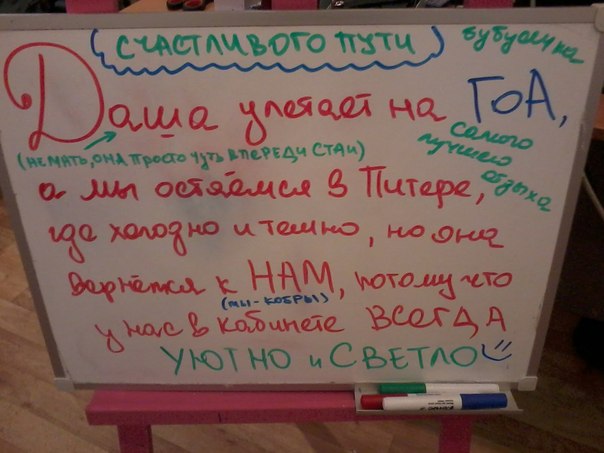 (СЧАСТЛИВОГО ПУТИ)
Даша улетает на ГОА,
(НЕ МАТЬ, ОНА ПРОСТО ЧУТЬ ВПЕРЕДИ СТАИ)
самого
лучшего
отдыха
а мы остаёмся в Питере,
где холодно и темно, но она
вернётся к НАМ, потому что
(МЫ - КОБРЫ)
у нас в кабинете ВСЕГДА
УЮТНО и СВЕТЛО